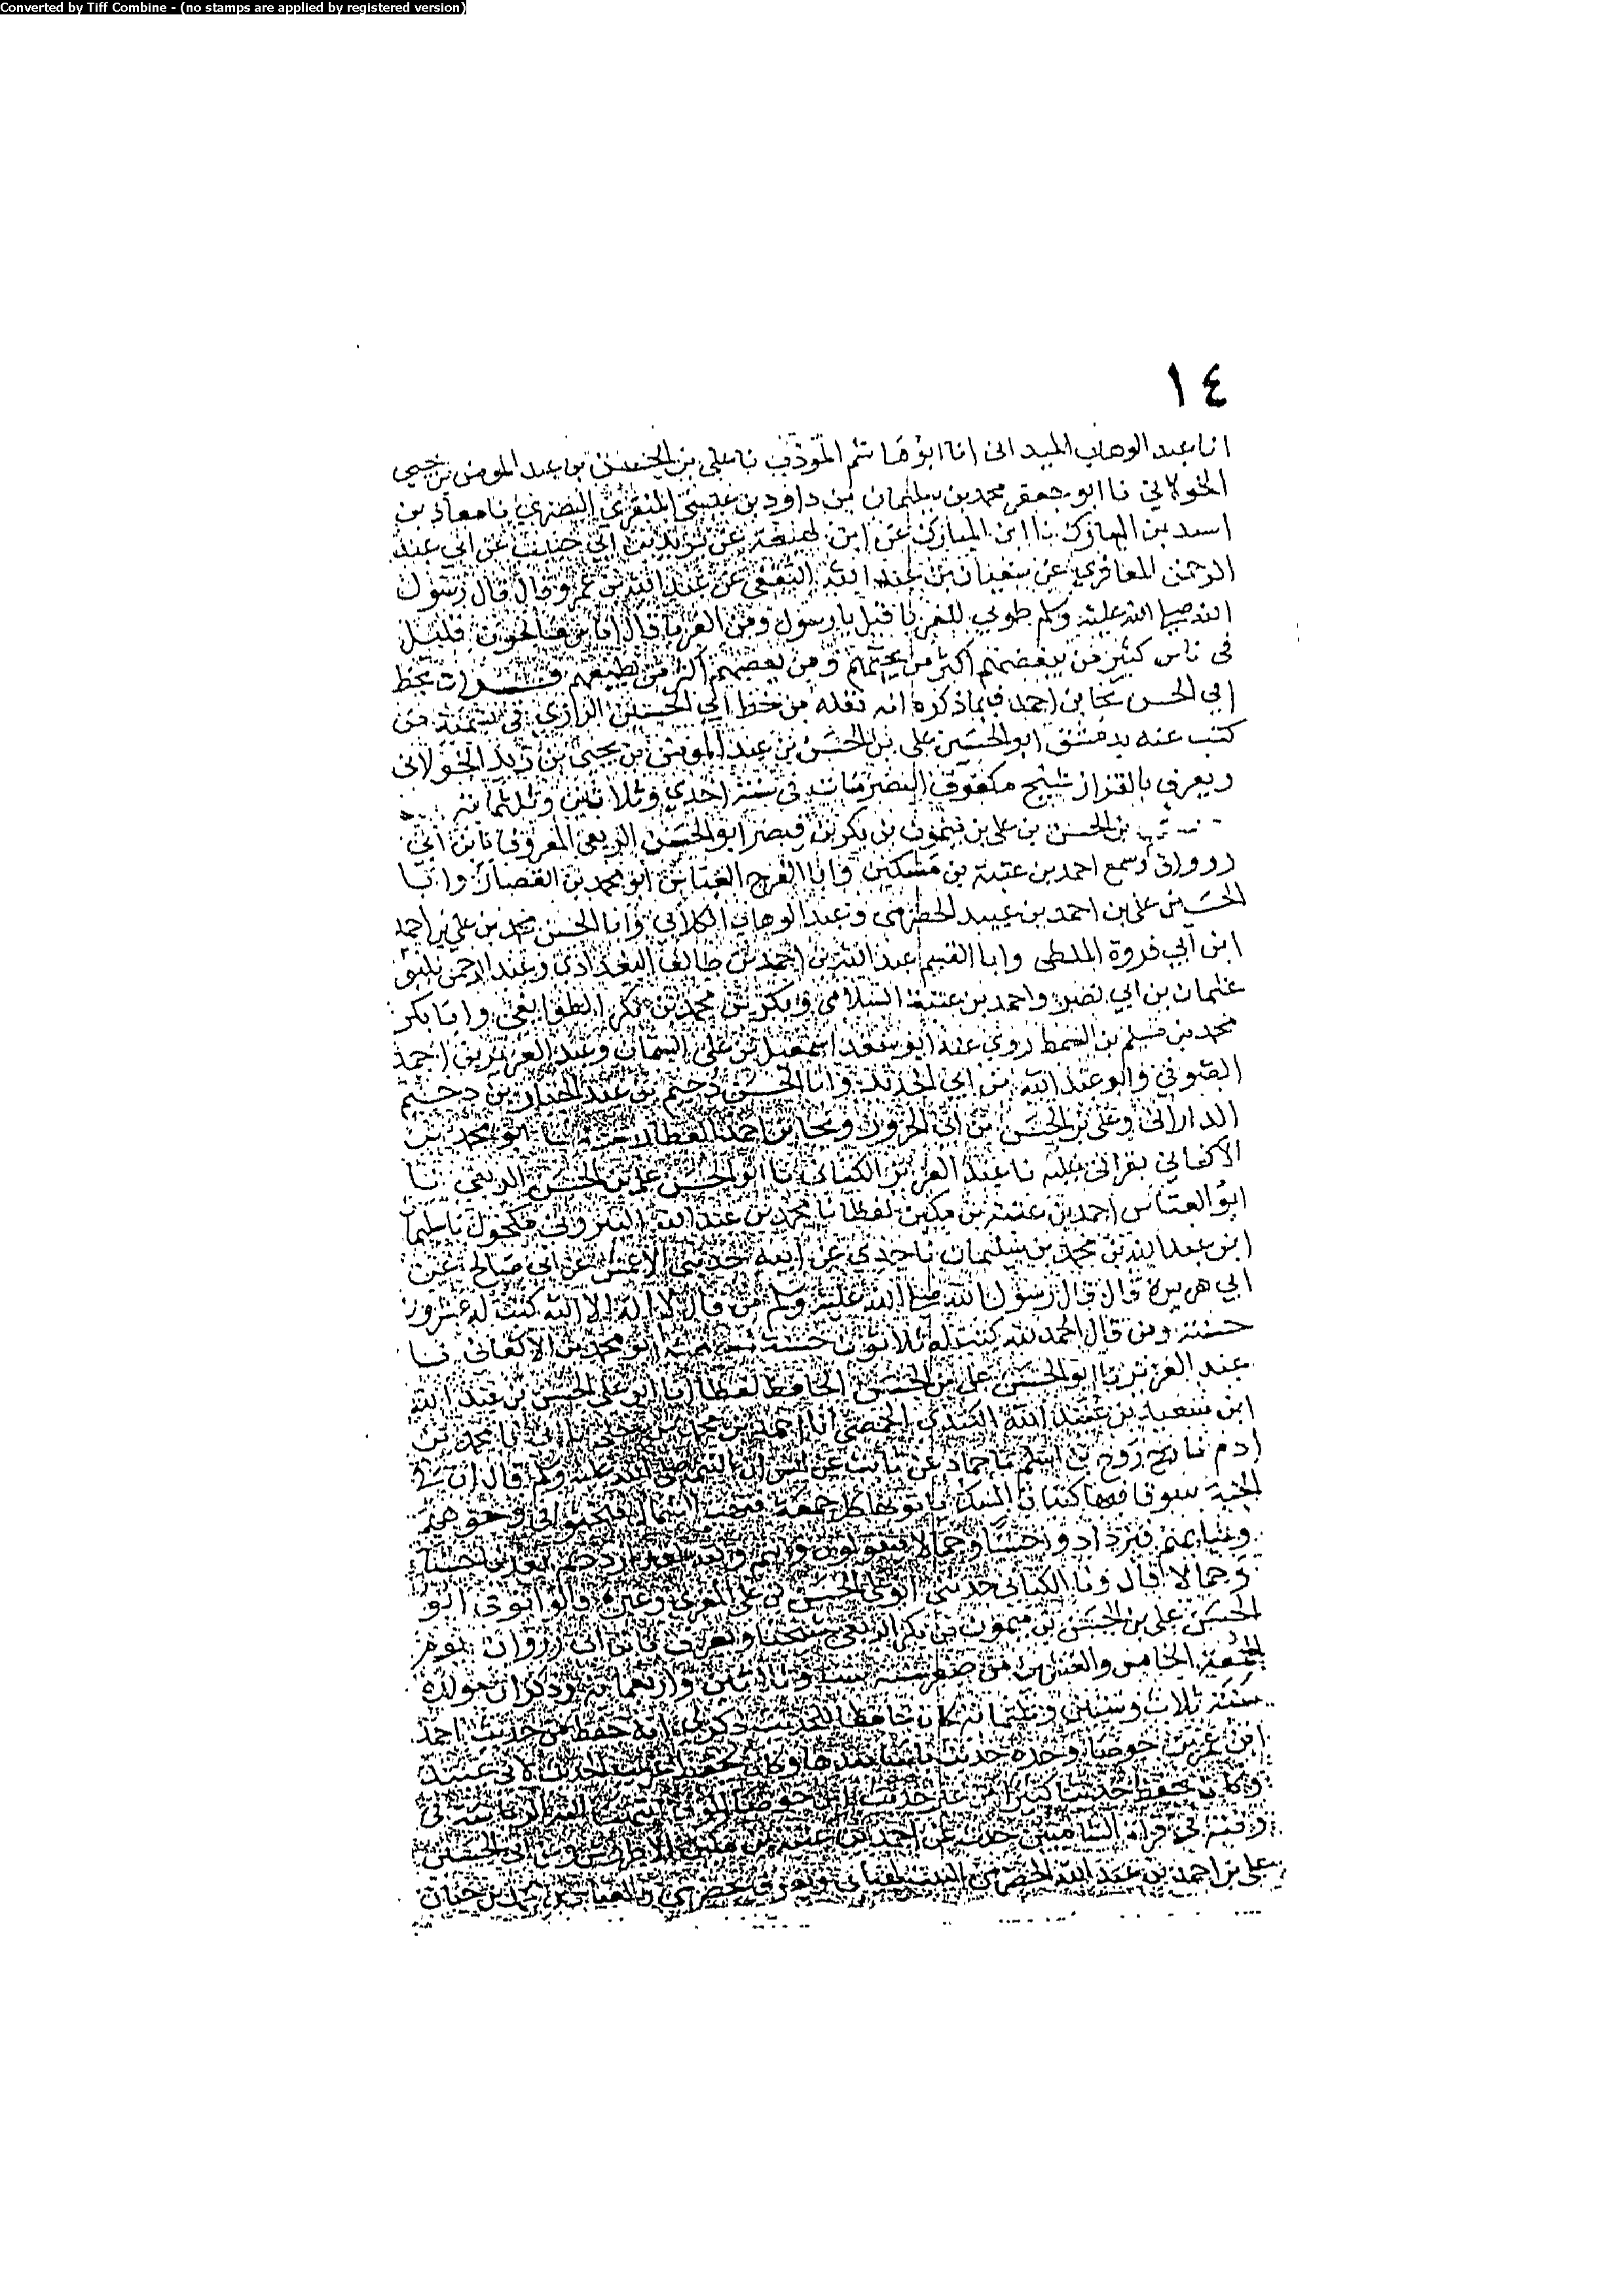 Converted by Tiff Combine - (no stamps are applied by registered version)
١٤
انا عبد الوهاب الميدانى انا ابو هاشم المؤذن نا على بن الحسن بن عبد المومن بن يحيى
الخولاني نا ابو جعفر محمد بن سليمان بن داود بن المنقري البصري نا معاذ بن
اسد بن المبارك نا ابن المبارك عن ابن لهيعة عن يزيد بن ابي حبيب عن ابي عبد
الرحمن المعافري عن سفيان بن عبد الله الثقفي عن عبد الله بن عمرو قال قال رسول
الله صلى الله عليه وسلم طوبي للغربا قيل يا رسول ومن الغربا قال اناس صالحون قليل
في ناس كثير من يبغضهم اكثر ممن ومن يعصيهم اكثر ممن يطيعهم قرات بخط
ابي الحسن نجا بن احمد فيما ذكره انه نقله من خط ابي الحسين الرازي في تسمية من
كتب عنه بدمشق ابو الحسين على بن الحسن بن عبد المومن بن يحيى بن زيد الخولانى
ويعرف بالقزاز شيخ مكفوف البصر مات في سنة احدي وثلاثين وثلثمائه
بن الحسن بن على بن ميمون بن بكر بن قيصر ابو الحسن الربعى المعروف بابن ابي
زروان سمع احمد بن عتبة بن مكين وابا الفرج العباس ابو محمد بن القصار وابا
الحسين على بن احمد بن عبيد الحضرمى وعبد الوهاب الكلابي وابا الحسن محمد بن على بن احمد
ابن ابي فروة الملطى وابا القسم عبد الله بن احمد بن طالب البغدادي وعبد الرحمن بن
عثمان بن ابي نصر واحمد بن عتبة السلامى وبكر بن محمد بن بكر الطوايفى وابا بكر
محمد بن مسلم بن السمط روي عنه ابو سعد اسمعيل بن على السمان وعبد العزيز بن احمد
الصوفي وابو عبد الله بن ابي الحديد وابا الحسن دحيم بن عبد الجبار بن دحيم
الدارانى وعلى بن الحسن بن ابي الحزور ونجا بن احمد العطار حدثنا ابو محمد بن
الاكفاني بقراتى عليه نا عبد العزيز الكتانى نا ابو الحسن على بن الحسن الربعى نا
ابو العباس احمد بن عتبة بن مكين لفظا نا محمد بن عبد الله البيروتى مكحول نا سليمان
ابن عبد الله بن محمد بن سليمان نا جدي عن ابيه حدثنى الاعمش عن ابي صالح عن
ابي هريرة قال قال رسول الله صلى الله عليه وسلم من قال لا اله الا الله كتب له عشرون
حسنة ومن قال الحمد لله كتبت له ثلاثون حسنة ابو محمد بن الاكفانى نا
عبد العزيز نا ابو الحسن على بن الحسن الحافظ لفظا انا ابو على الحسن بن عبد الله
ابن سعيد بن عبيد الله الكندي الحمصى انا احمد بن محمد بن نا محمد بن
ادم نا روح بن اسلم نا حماد عن ثابت عن انس ان النبى صلى الله عليه وسلم قال ان في
الجنة سوقا فيها كثبان المسك ياتونها كل جمعة فتهب الشمال فتحثوا في وجوههم
وثيابهم فيزدادوا حسنا وجمالا فيقولون والله لقد ازددتم بعدنا حسنا
وجمالا قال ونا الكتانى حدثنى ابو على الحسن بن على المقري وغيره قالوا توفى ابو
الحسن على بن الحسن بن ميمون بن بكر الربعى شيخنا ويعرف بابن ابي زروان يوم
الجمعة الخامس والعشرين من صفر سنة ست وثلاثين واربعمائه وذكر ان مولده
سنة ثلاث وستين وثلثمائه كان حافظا للحديث ذكر لى انه حفظ من حديث احمد
ابن عمير بن حوصا وحده حديث وكان يحفظ غريب الحديث لابي عبيد
وكان يحفظ حديثا كثيرا من غير حديث ابن حوصا انتهت اليه الرياسة في
وقته في قراة الشاميين حدث عن احمد بن عتبة بن مكين الاطروش وعن ابي الحسين
على بن احمد بن عبد الله الحضرمى